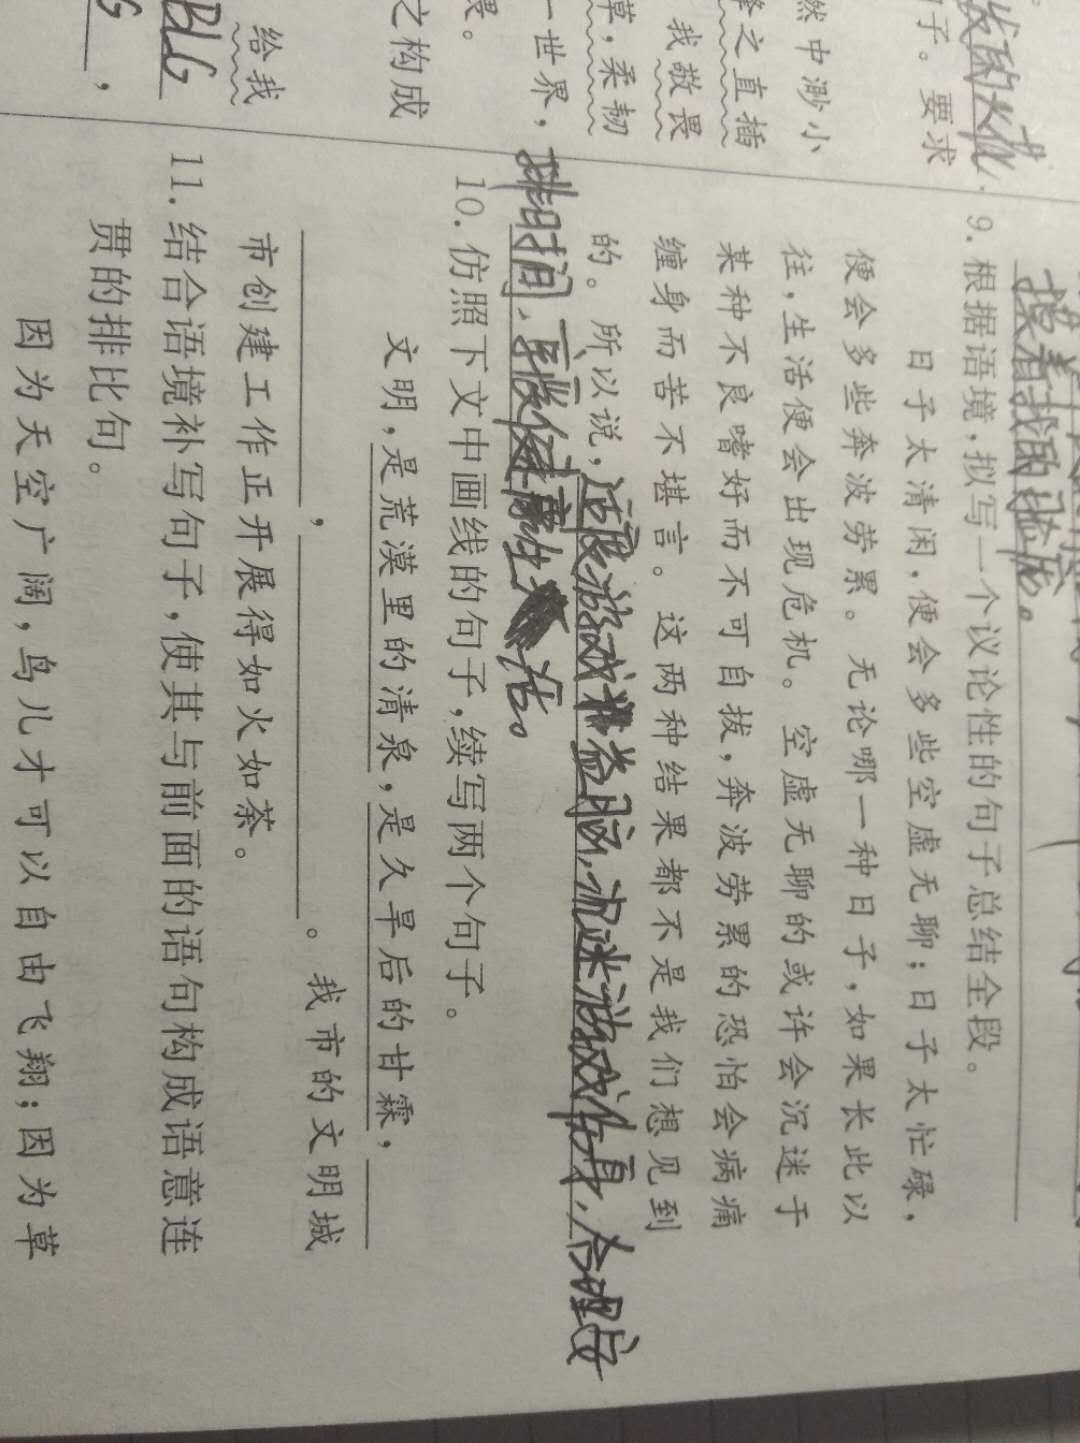 子。要求
然中渺小
之直插
我敬畏
草,柔韧
一世界,
畏。
之构成
给我
摸着我的脸庞。
9. 根据语境,拟写一个议论性的句子总结全段。
日子太清闲,便会多些空虚无聊;日子太忙碌,
便会多些奔波劳累。无论哪一种日子,如果长此以
往,生活便会出现危机。空虚无聊的或许会沉迷于
某种不良嗜好而不可自拔,奔波劳累的恐怕会病痛
缠身而苦不堪言。这两种结果都不是我们想见到
的。所以说,适度游戏益脑,沉迷游戏伤身,合理安
排时间,享受健康生活。
10. 仿照下文中画线的句子,续写两个句子。
文明,是荒漠里的清泉,是久旱后的甘霖,
,。我市的文明城
市创建工作正开展得如火如荼。
11. 结合语境补写句子,使其与前面的语句构成语意连
贯的排比句。
因为天空广阔,鸟儿才可以自由飞翔;因为草